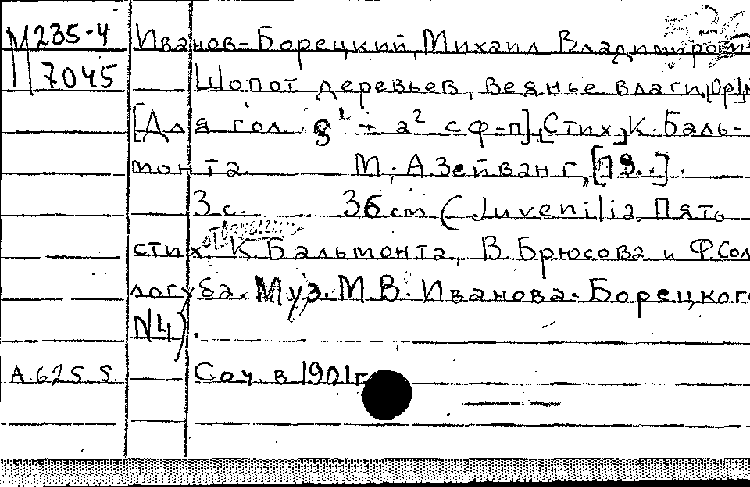 М235-4 Иванов-Борецкий, Михаил Владимирович
7045 Шопот деревьев, веянье влаги,
[Для гол. g¹ - a² с ф-п]. Стих. К. Баль-
монта М; А. Зейванг, [19..].
3 с. 36 cm (Juvenilia. Пять
стих. К. Бальмонта, В. Брюсова и Ф. Сол-
логуба. Муз. М. В. Иванова-Борецкого
N4).
А.625 S Соч. в 1901 г.